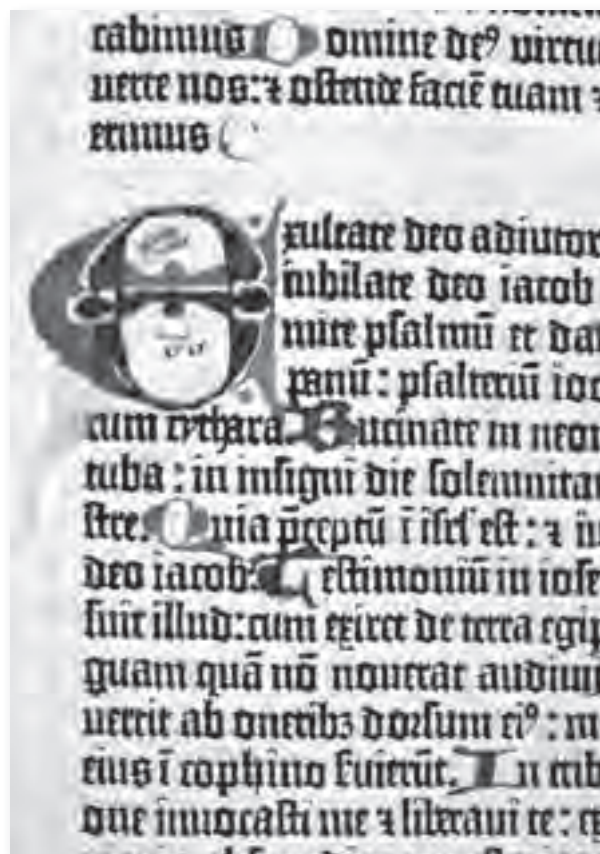 cabimus Domine de⁹ virtu
uerte nos: ⁊ ostende faciē tuam ⁊
erimus
Exultate deo adiutor
iubilate deo iacob
mite psalmū et da
panū: psalteriū ioc
cum cythara. Bucinate in neom
tuba: in insigni die solemnita
stre. Quia p̄ceptū ī isrl' est: ⁊ iu
deo iacob. Testimoniū in iose
suit illud: cum exiret de terra egip
guam quā nō nouerat audiui
uertit ab oneribꝫ dorsum ei⁹: m
eius ī cophino seruierūt. In trib
one inuocasti me ⁊ liberaui te: ex